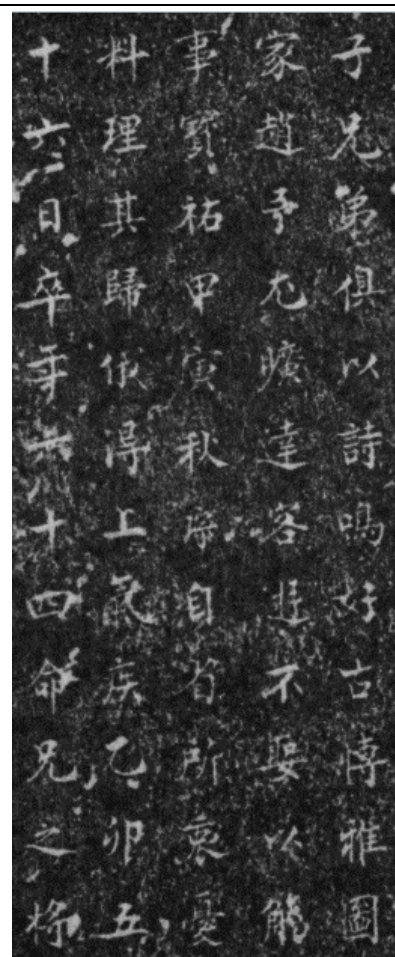 子兄弟俱以詩鳴好古博雅圖
家趙予尤曠達客遊不娶以觴
事寶祐甲寅秋將自前所裒憂
料理其歸俄得上氣疾乙卯五
十六日卒年六十四命兄之將